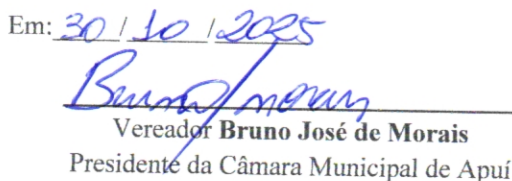 Em: 30 / 10 / 2025
Bruno Morais
Vereador Bruno José de Morais
Presidente da Câmara Municipal de Apuí